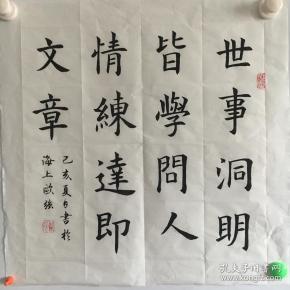 世事洞明
皆學問人
情練達即
文章
己亥夏日書於
海上歐強
孔夫子旧书网